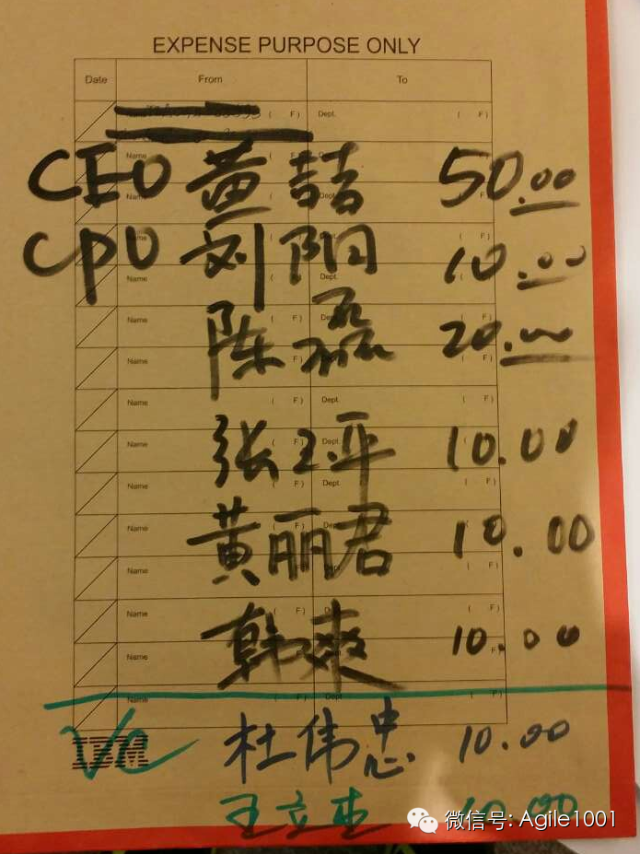 EXPENSE PURPOSE ONLY
Date From To
( F ) Dept. ( F )
CEO 黄喆 50.00
Name ( F ) Dept. ( F )
Name
CPO 刘阳 10.00
Name Dept.
Name
陈磊 20.00
Name
Name ( F ) Dept. ( F )
张玉平 10.00
Name
Name
黄丽君 10.00
Name
Name
韩爽 10.00
Name
Name
VC 杜伟忠 10.00
IBM
王立杰 10.00
微信号: Agile1001